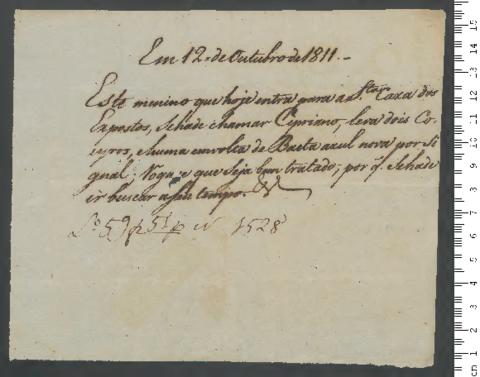 Em 12. de Outubro de 1811.-
Este menino que hoje entra para a S.ta Caza dos
Expostos, Sehade chamar Cipriano, leva dois Co-
eyros, ehuma emvolta de Baeta azul nova por Si
gnal; Roga, e que Seja bem tratado, por q. Sehade
ir buscar a seo tempo.
1528
15
14
13
12
11
10
9
8
7
6
5
4
3
2
1